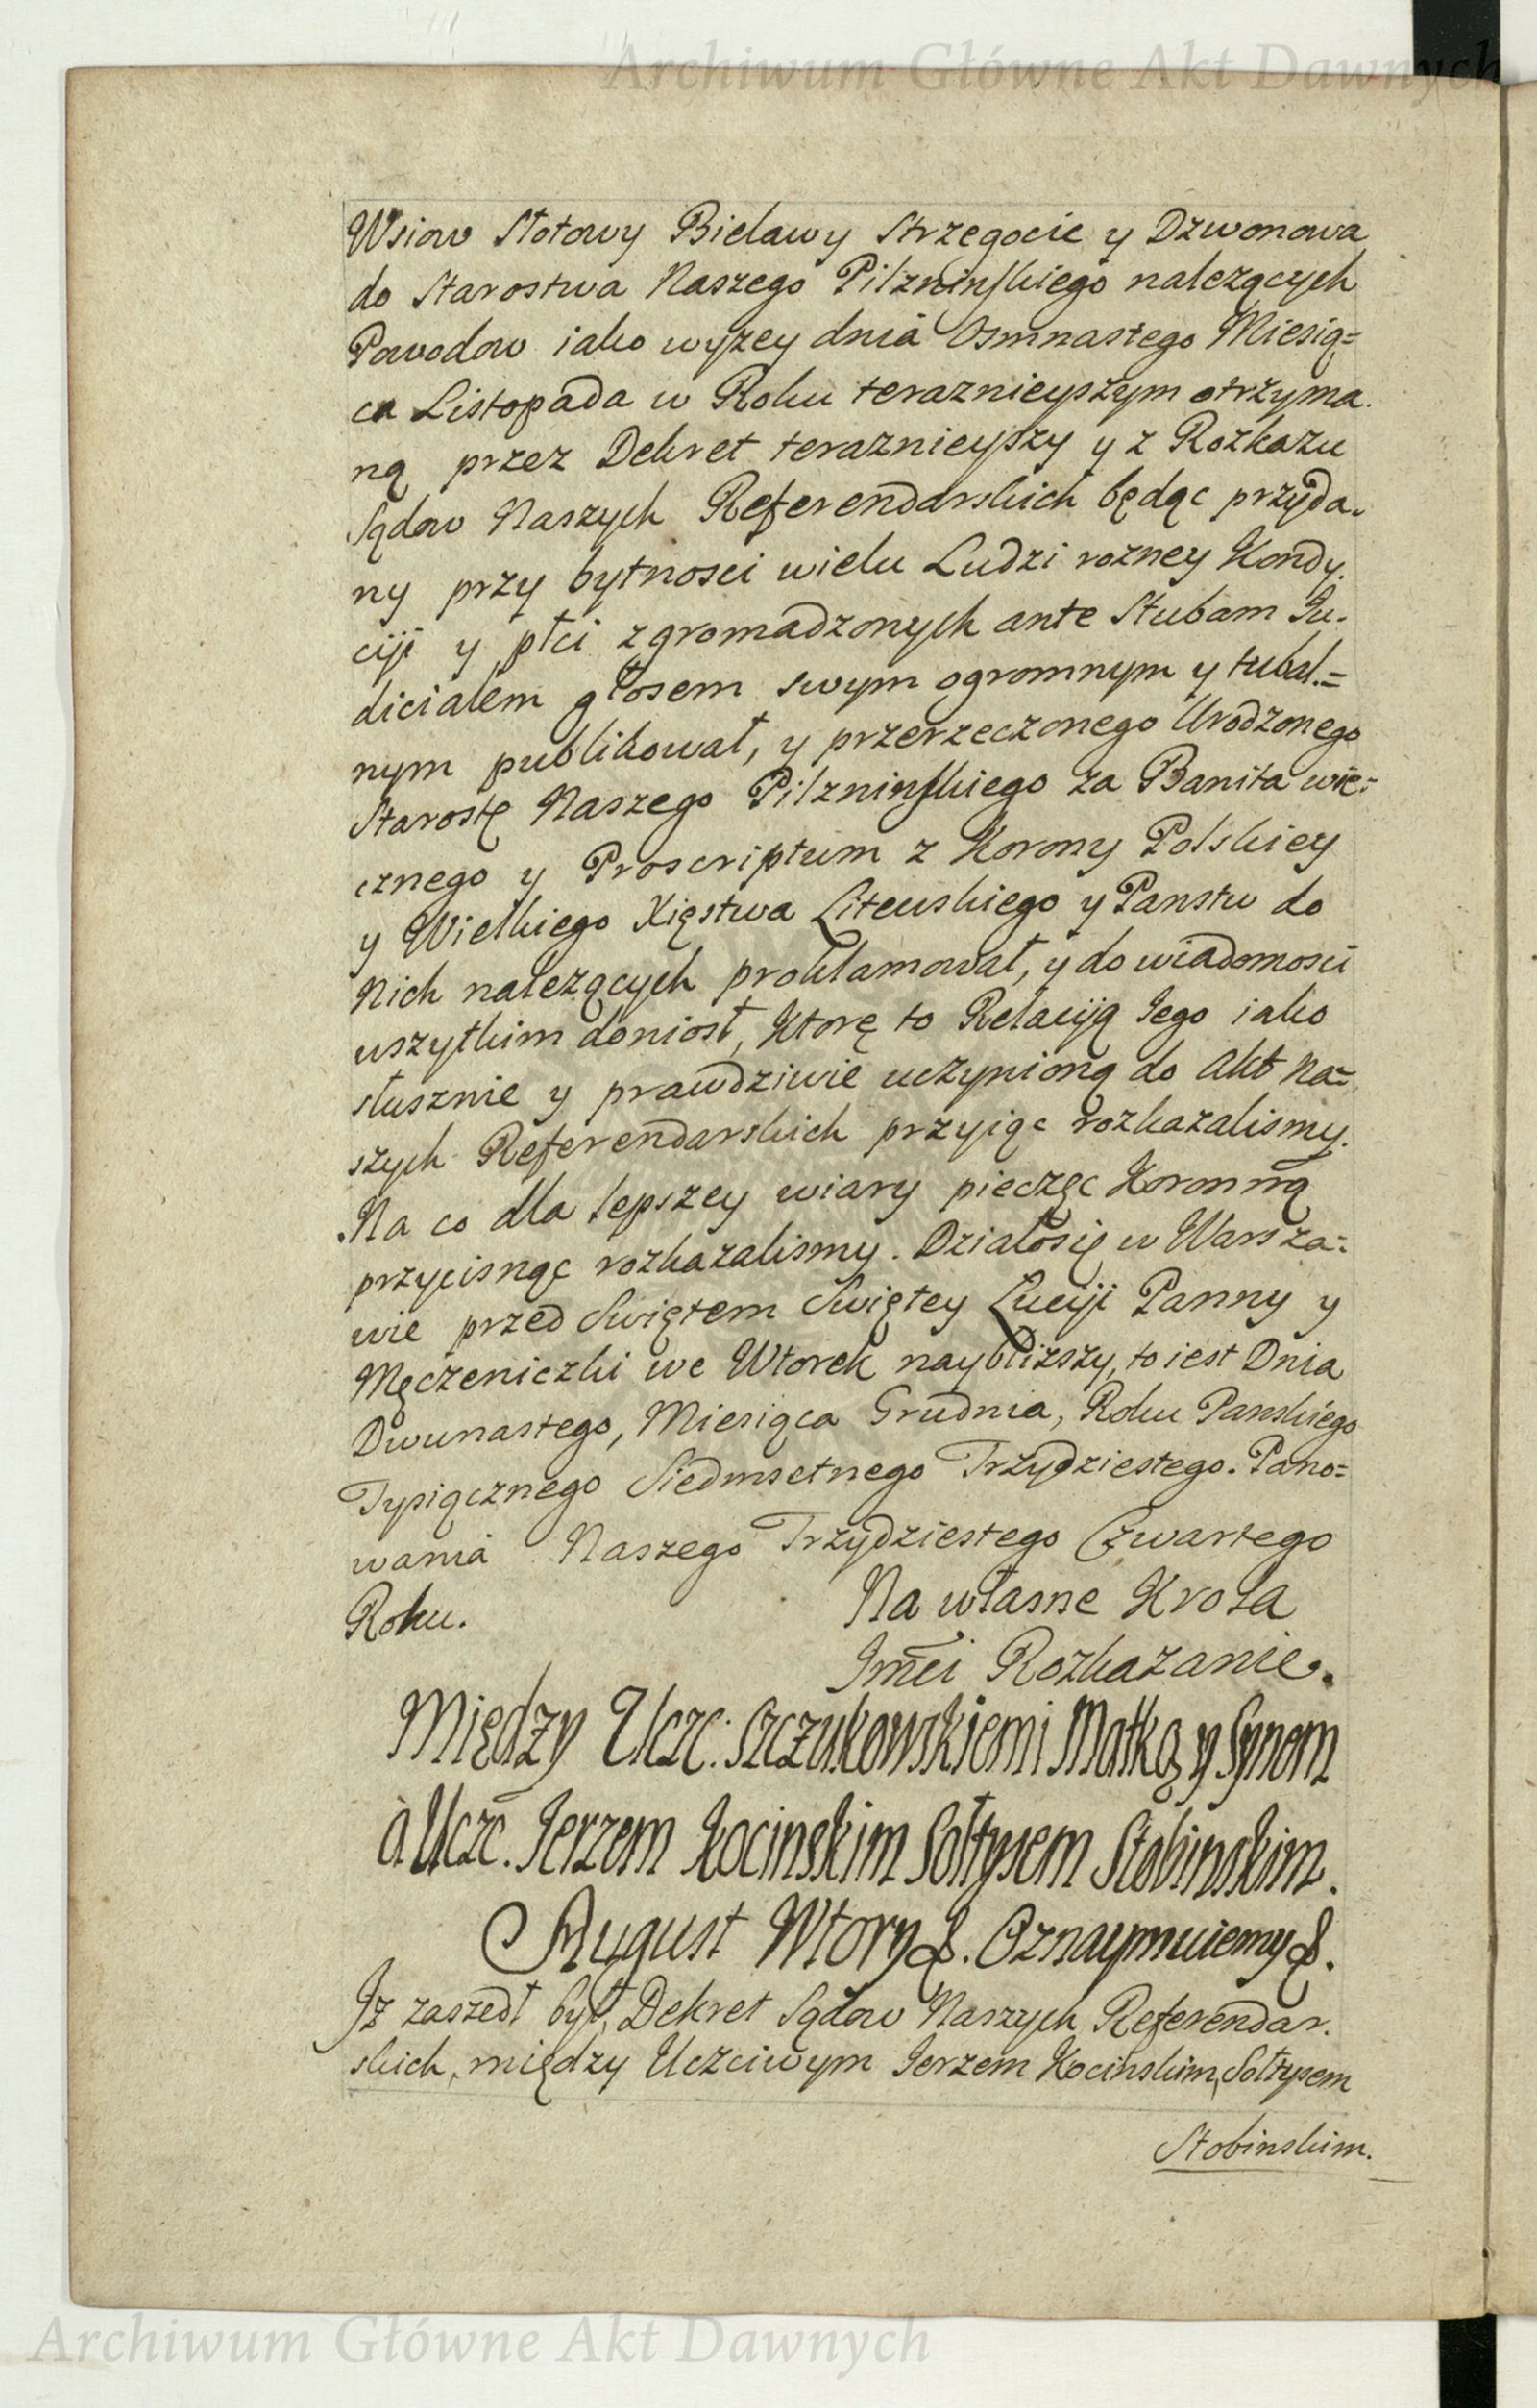 Archiwum Główne Akt Dawnych
Wsiow Słotowy Bielawy Strzegocie y Dzwonowa
do Starostwa Naszego Pilzninskiego nalezących
Powodow iako wyzey dnia Osmnastego Miesią=
ca Listopada w Roku teraznieyszym otrzyma.
ną przez Dekret teraznieyszy y z Rozkazu
Sądow Naszych Referendarskich będąc przyda.
ny przy bytnosci wielu Ludzi rozney Kondy.
cyi y płci zgromadzonych ante Stubam Ju.
dicialem głosem swym ogromnym y tubal.=
nym publikował, y przerzeczonego Urodzonego
Starostę Naszego Pilzninskiego za Banita wie=
cznego y Proscriptum z Korony Polskiey
y Wielkiego Xięstwa Litewskiego y Panstw do
Nich nalezących proklamował, y do wiadomosci
wszytkim doniosł, Ktorę to Relacyją Jego iako
słusznie y prawdziwie uczynioną do Akt Na=
szych Referendarskich przyiąc rozkazalismy.
Na co dla lepszey wiary pieczęc Koronną
przycisnąc rozkazalismy. Działosię w Warsza=
wie przed Swiętem Swiętey Lucyji Panny y
Męczeniczki we Wtorek nayblizszy, to iest Dnia
Dwunastego, Miesiąca Grudnia, Roku Panskiego
Tysiącznego Siedmsetnego Trzydziestego. Pano=
wania Naszego Trzydziestego Czwartego
Roku. Na własne Krola
Jmci Rozkazanie.
Między Uczc: Szczukowskiemi Matką y Synem
à Uczc. Jerzem Kocinskim Sołtysem Stobinskim.
August Wtory &. Oznaymuiemy &.
Iz zaszedł był Dekret Sądow Naszych Referendar.
skich, między Uczciwym Jerzem Kocinskim, Sołtysem
Stobinskim.
Archiwum Główne Akt Dawnych